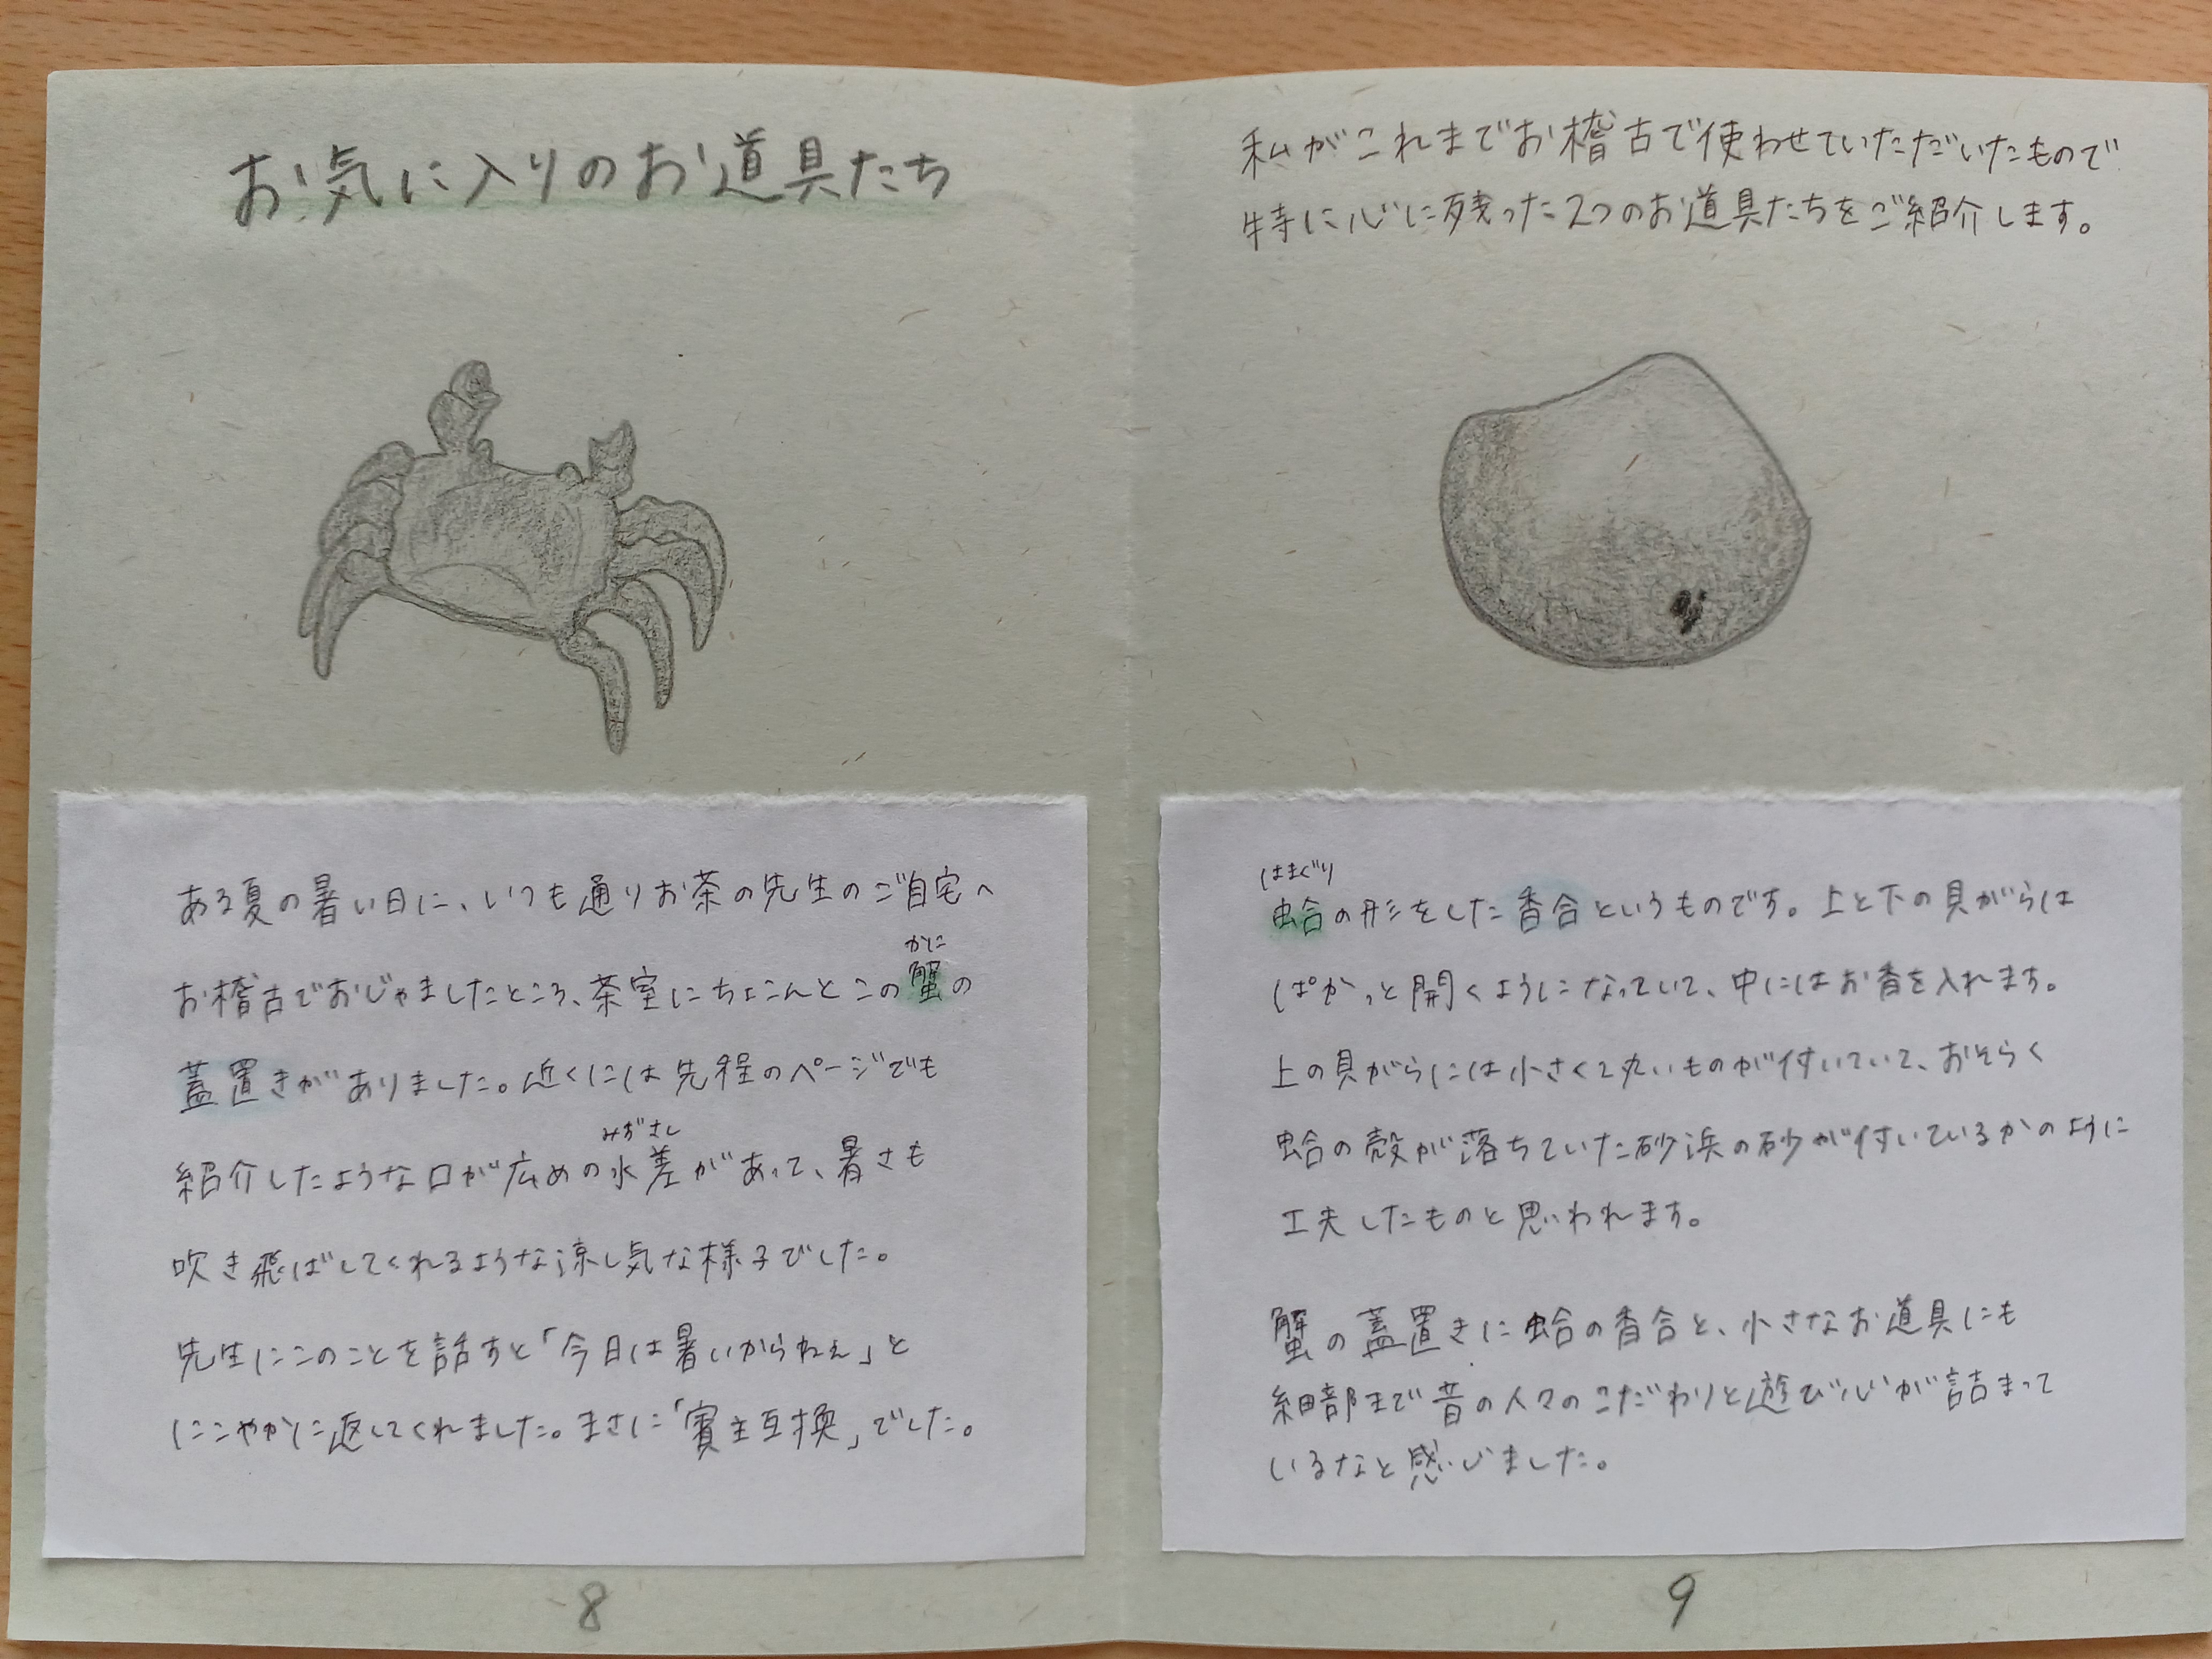 お気に入りのお道具たち
ある夏の暑い日に、いつも通りお茶の先生のご自宅へ
かに
お稽古でおじゃましたところ、茶室にちょこんとこの蟹の
蓋置きがありました。近くには先程のページでも
みずさし
紹介したような口が広めの水差があって、暑さも
吹き飛ばしてくれるような涼し気な様子でした。
先生にこのことを話すと「今日は暑いからねぇ」と
にこやかに返してくれました。まさに「賓主互換」でした。
8
私がこれまでお稽古で使わせていただいたもので
特に心に残った2つのお道具たちをご紹介します。
はまぐり
蛤の形をした香合というものです。上と下の貝がらは
ぱかっと開くようになっていて、中にはお香を入れます。
上の貝がらには小さくて丸いものが付いていて、おそらく
蛤の殻が落ちていた砂浜の砂が付いているかのように
工夫したものと思われます。
蟹の蓋置きに蛤の香合と、小さなお道具にも
細部まで昔の人々のこだわりと遊び心が詰まって
いるなと感じました。
9